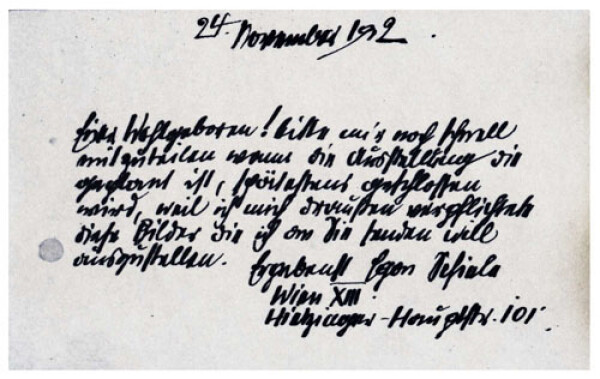 24. November 1912.
Euer Wohlgeboren! bitte mir noch schnell
mitzuteilen wann die Ausstellung die
geplant ist, spätestens geschlossen
wird, weil ich mich draussen verpflichtete
diese Bilder die ich an Sie senden will
auszustellen.
Ergebenst Egon Schiele
Wien XIII
Hietzinger-Hauptstr. 101.